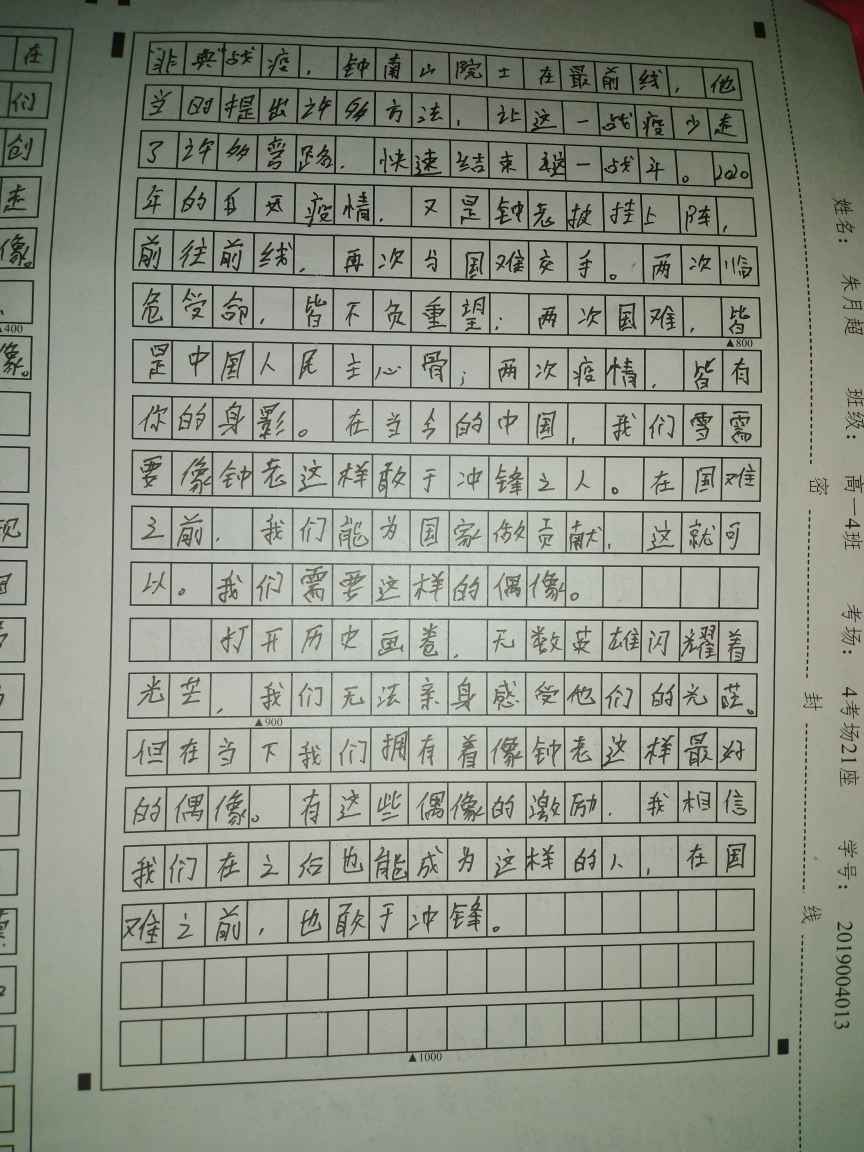 在
们
创
走
像。
▲400
像。
现
"非典"战疫，钟南山院士在最前线，他
当时提出许多方法，让这一战疫少走
了许多弯路，快速结束这一战斗。2020
年的自还疫情，又是钟老披挂上阵，
前往前线，再次与国难交手。两次临
危受命，皆不负重望；两次国难，皆
▲800
是中国人民主心骨；两次疫情，皆有
你的身影。在当今的中国，我们雪需
要像钟老这样敢于冲锋之人。在国难
之前，我们能为国家做贡献，这就可
以。我们需要这样的偶像。
打开历史画卷，无数英雄闪耀着
光芒，我们无法亲身感受他们的光茫。
▲900
但在当下我们拥有着像钟老这样最好
的偶像。有这些偶像的激励，我相信
我们在之后也能成为这样的人，在国
难之前，也敢于冲锋。
▲1000
姓名：朱月超 班级：高一4班 考场：4考场21座 学号：2019004013
密 封 线